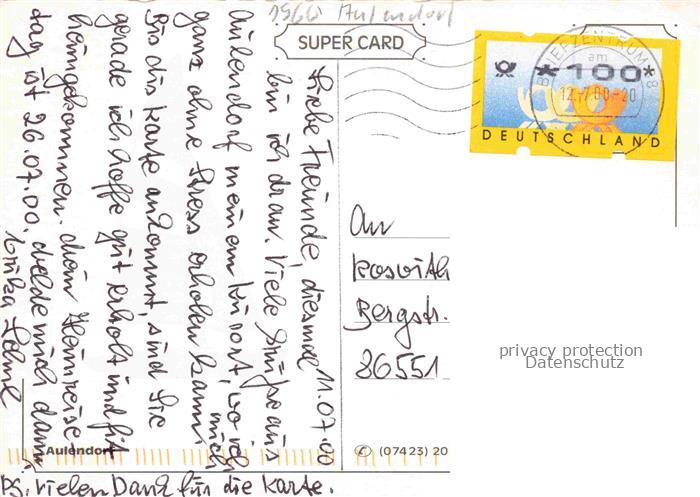 1960 Aulendorf
SUPER CARD
11.07.00
Liebe Freunde, diesmal
bin ich dran. Viele Grüße aus
Aulendorf meinem Kurort, wo ich mich
ganz ohne Stress erholen kann.
Bis die Karte ankommt, sind Sie
gerade ich hoffe gut erholt und fit
heimgekommen. Mein Heimreise-
tag ist 26.07.00, melde mich dann
Erika
PS. Vielen Dank für die Karte.
BRIEFZENTRUM 88
am
12.-7.00-20
*100*
DEUTSCHLAND
An
Roswith
Bergstr.
86551
privacy protection
Datenschutz
Aulendorf
© (07423) 20